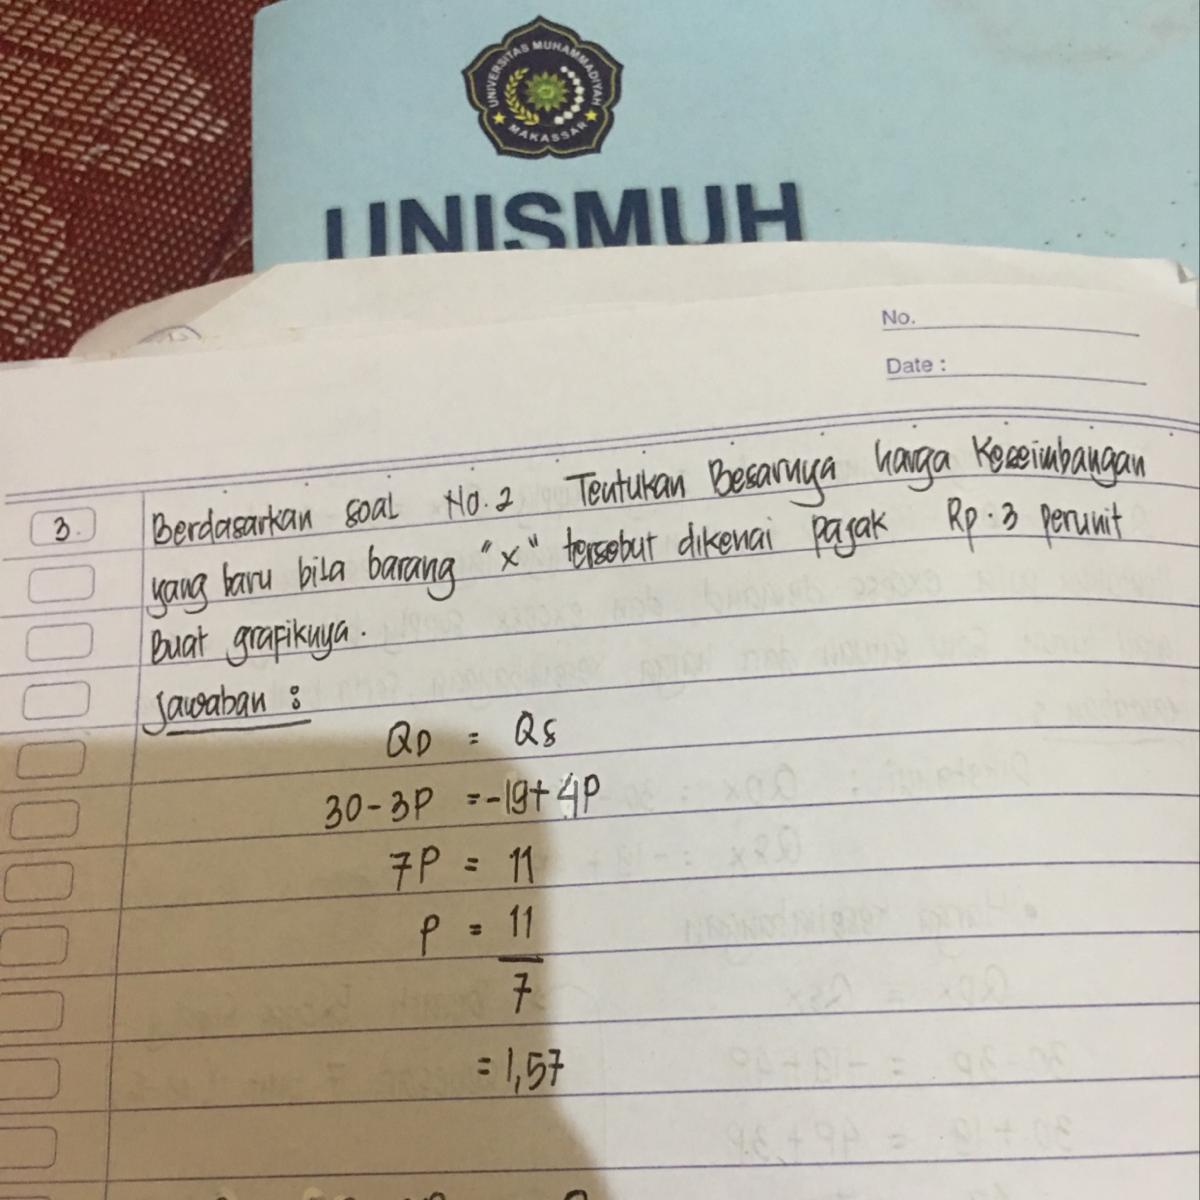 UNIVERSITAS MUHAMMADIYAH
MAKASSAR
UNISMUH
No.
Date :
3. Berdasarkan soal No.2 Tentukan Besarnya harga Keseimbangan
yang baru bila barang "x" tersebut dikenai pajak Rp.3 perunit
Buat grafiknya.
Jawaban :
QD = QS
30-3P = -19+4P
7P = 11
P = 11
7
= 1,57